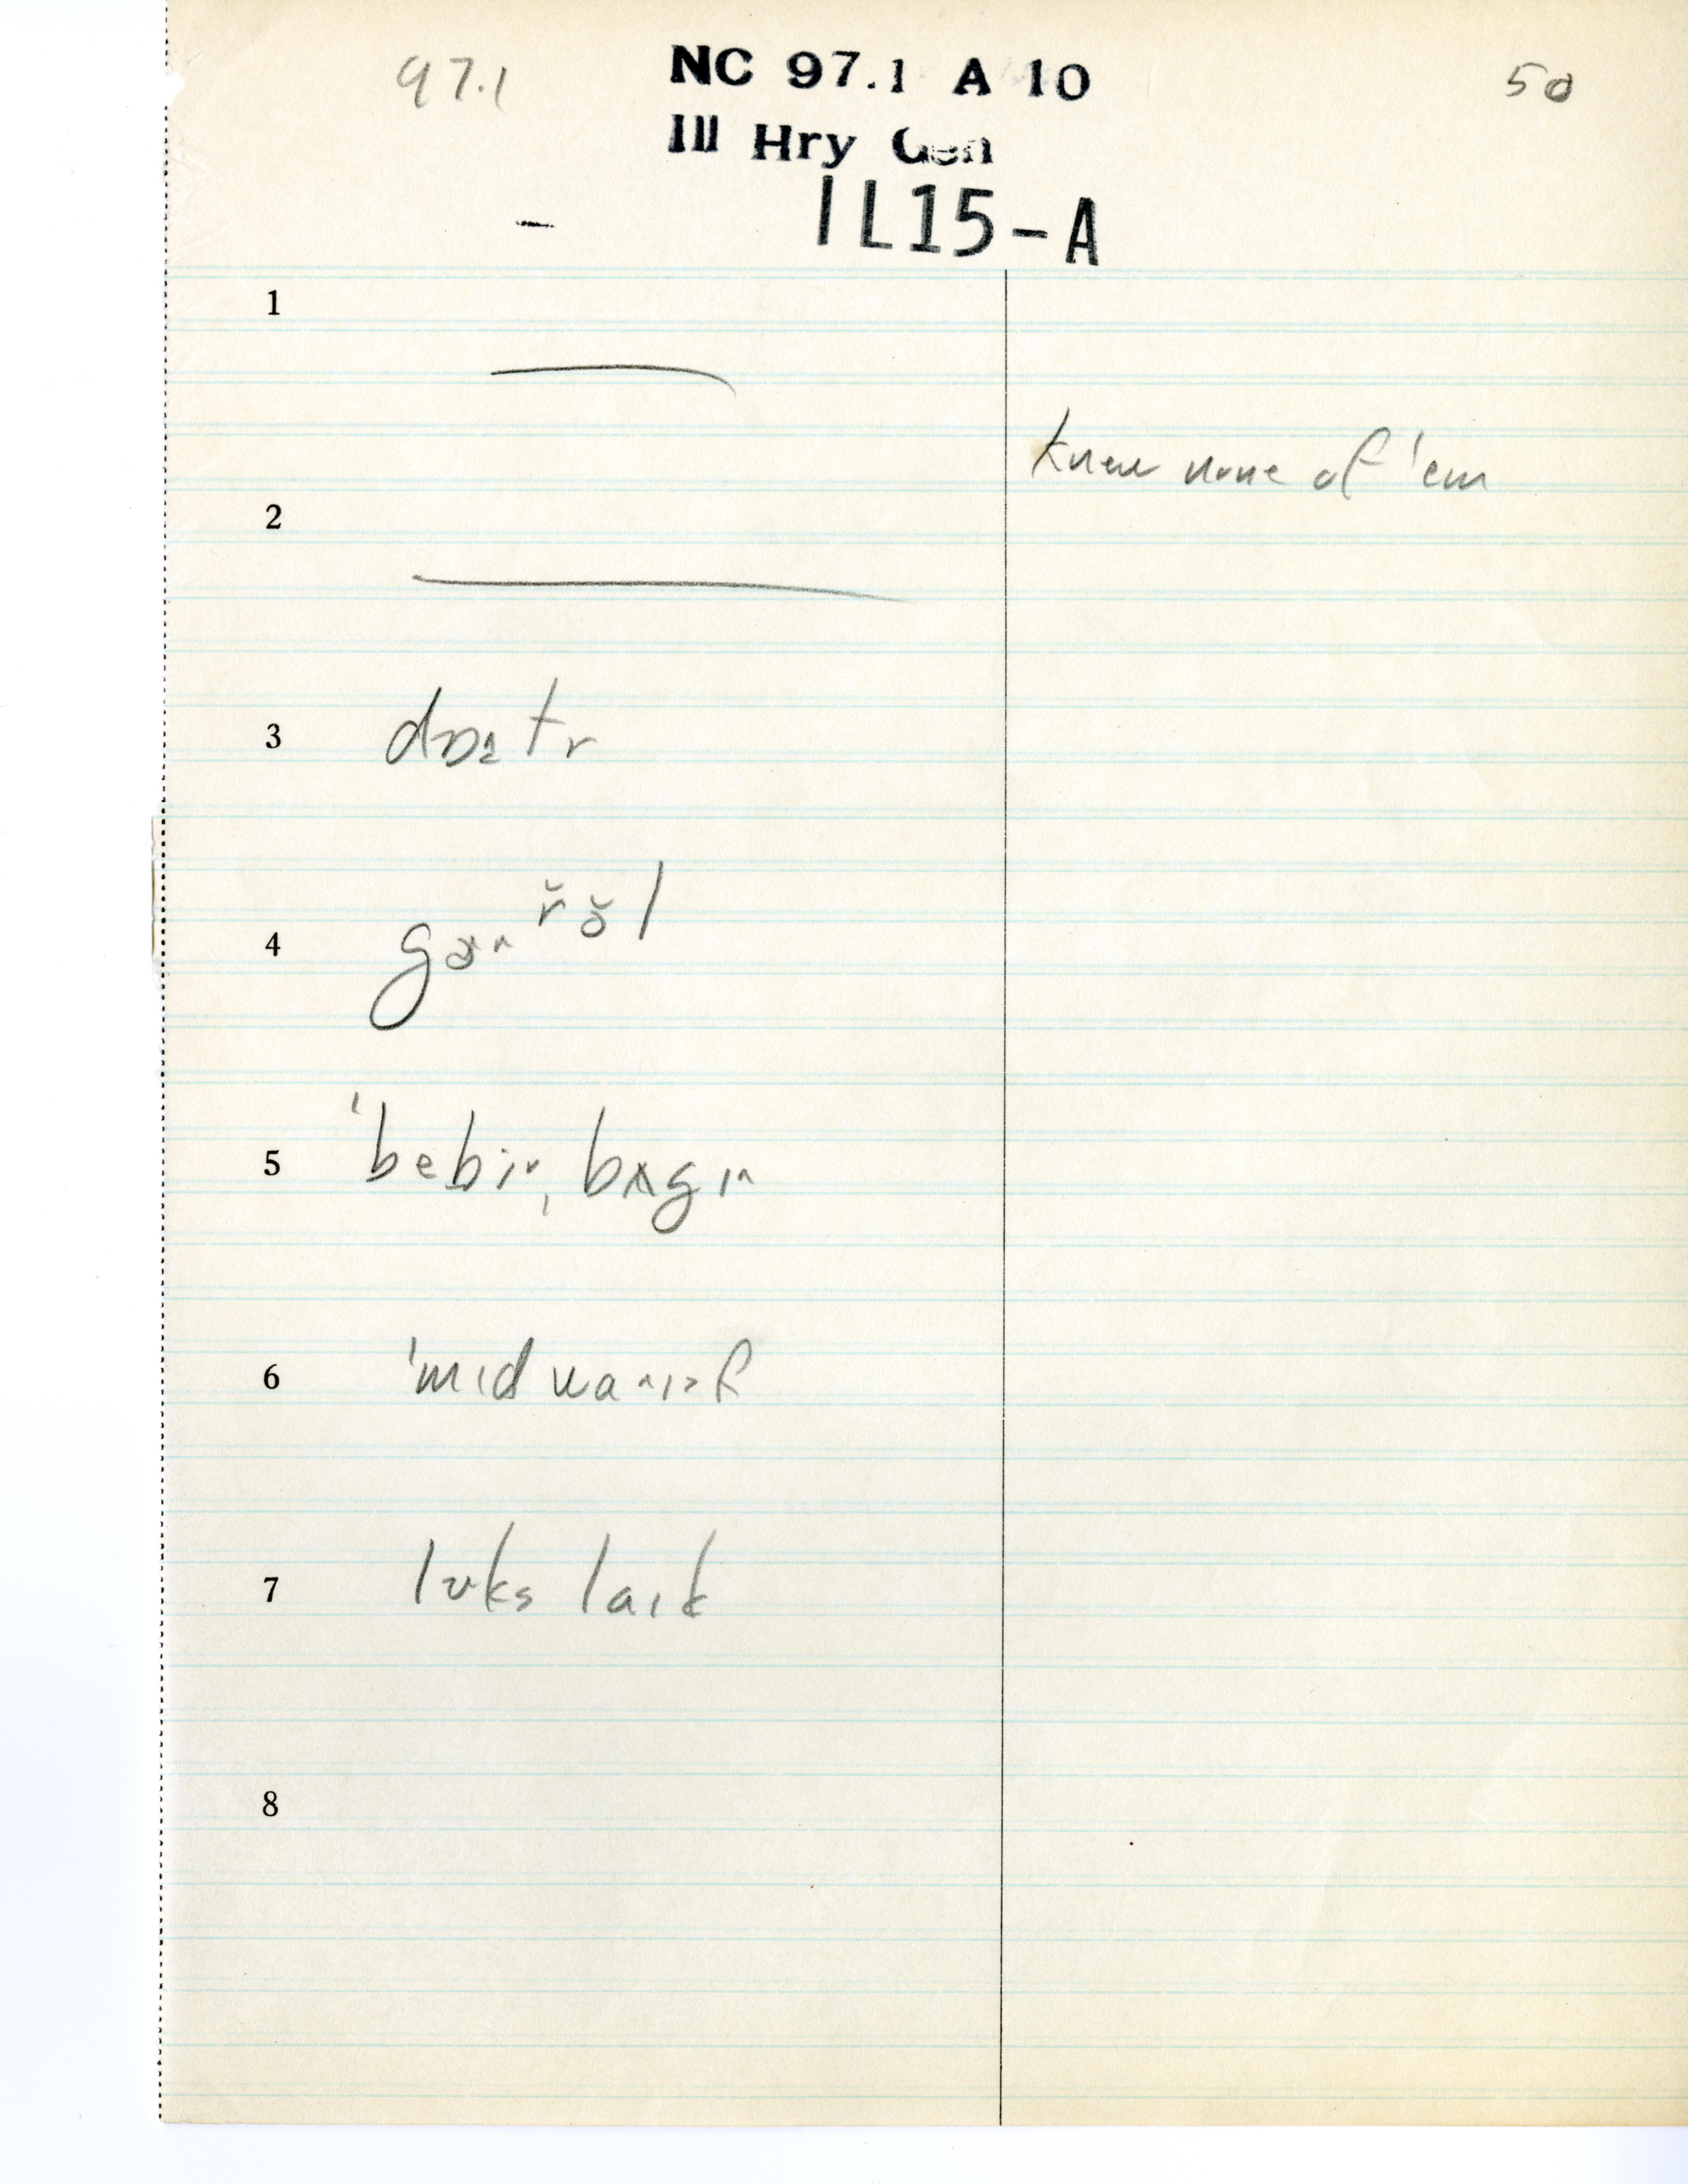 97.1
NC 97.1 A 10
50
Ill Hry Gen
– IL15-A
1
knew none of 'em
2
3
4
5 ˈbebiˇˌbʌgɪ^
6
7 lʊks laɪk
8